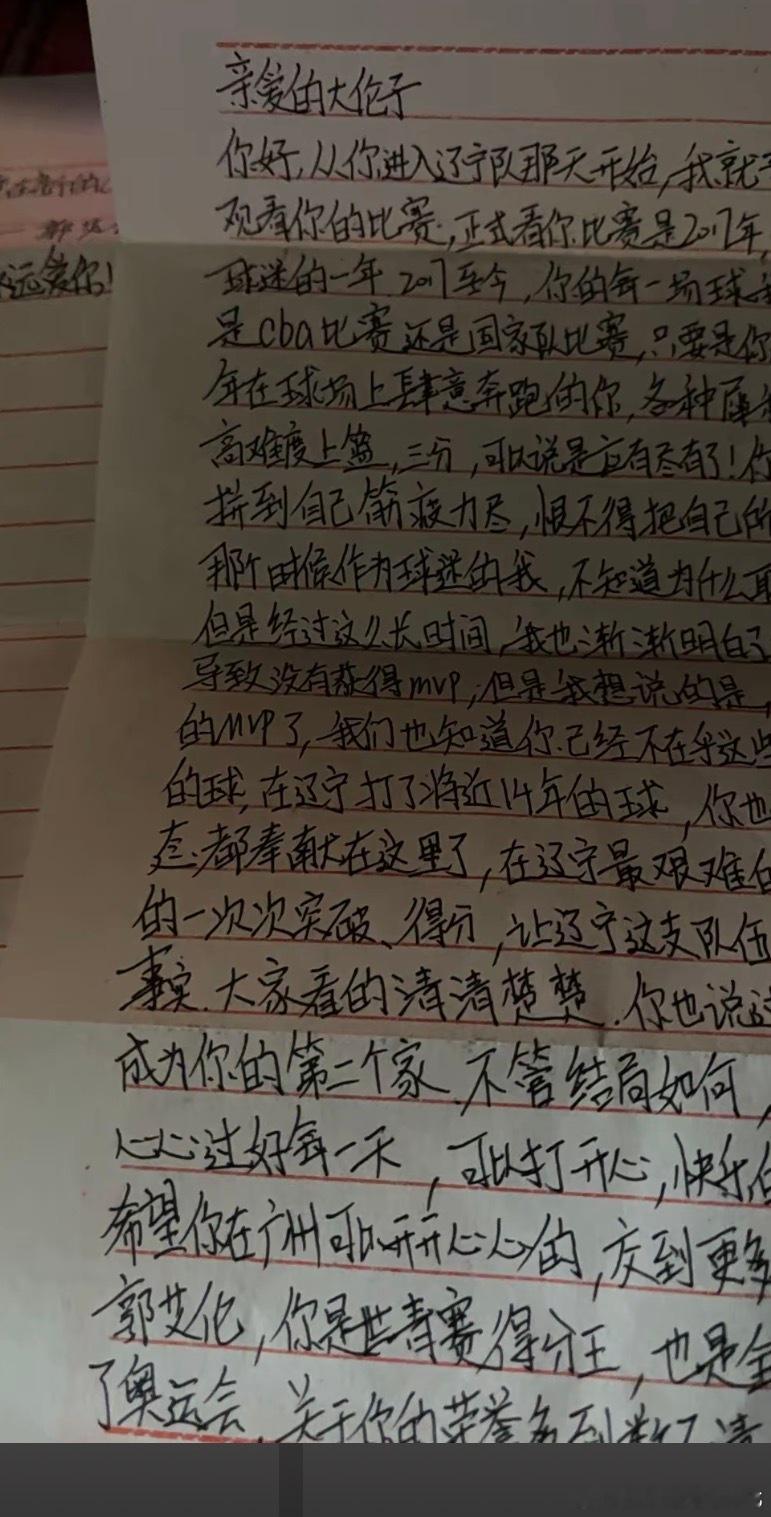 亲爱的大伦子
你好,从你进入辽宁队那天开始,我就
观看你的比赛,正式看你比赛是2017年,
球迷的一年.2017至今,你的每一场球
是cba比赛还是国家队比赛,只要是你
年在球场上肆意奔跑的你,各种
高难度上篮,三分,可以说是应有尽有了!你
拼到自己筋疲力尽,恨不得把自己的所
那个时候作为球迷的我,不知道为什么
但是经过这么长时间,我也渐渐明白了
导致没有获得mvp,但是我想说的是,
的MVP了,我们也知道你已经不在乎这些
的球,在辽宁打了将近14年的球,你也
都奉献在这里了,在辽宁最艰难的
的一次次突破、得分,让辽宁这支队伍
事实.大家看的清清楚楚.你也说过
成为你的第二个家.不管结局如何,
心心过好每一天,可以打开心,快乐的
希望你在广州可以开开心心的,交到更多
郭艾伦,你是世青赛得分王,也是全
了奥运会,关于你的荣誉多到数不清
远爱你!